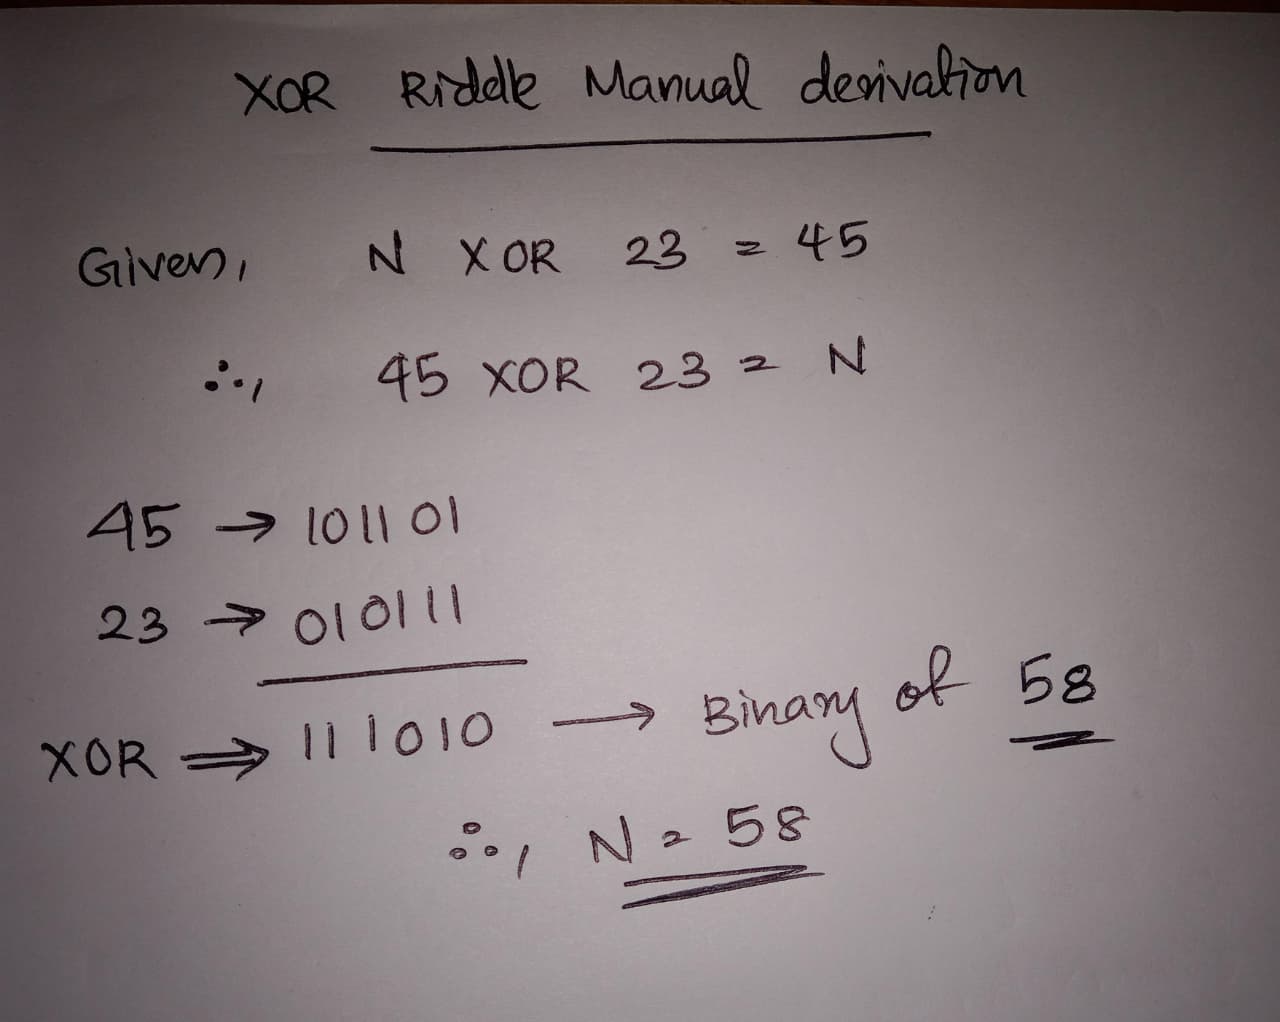 XOR Riddle Manual derivation
Given, N XOR 23 = 45
∴, 45 XOR 23 = N
45 → 101101
23 → 010111
XOR ⇒ 111010 → Binary of 58
∴, N = 58